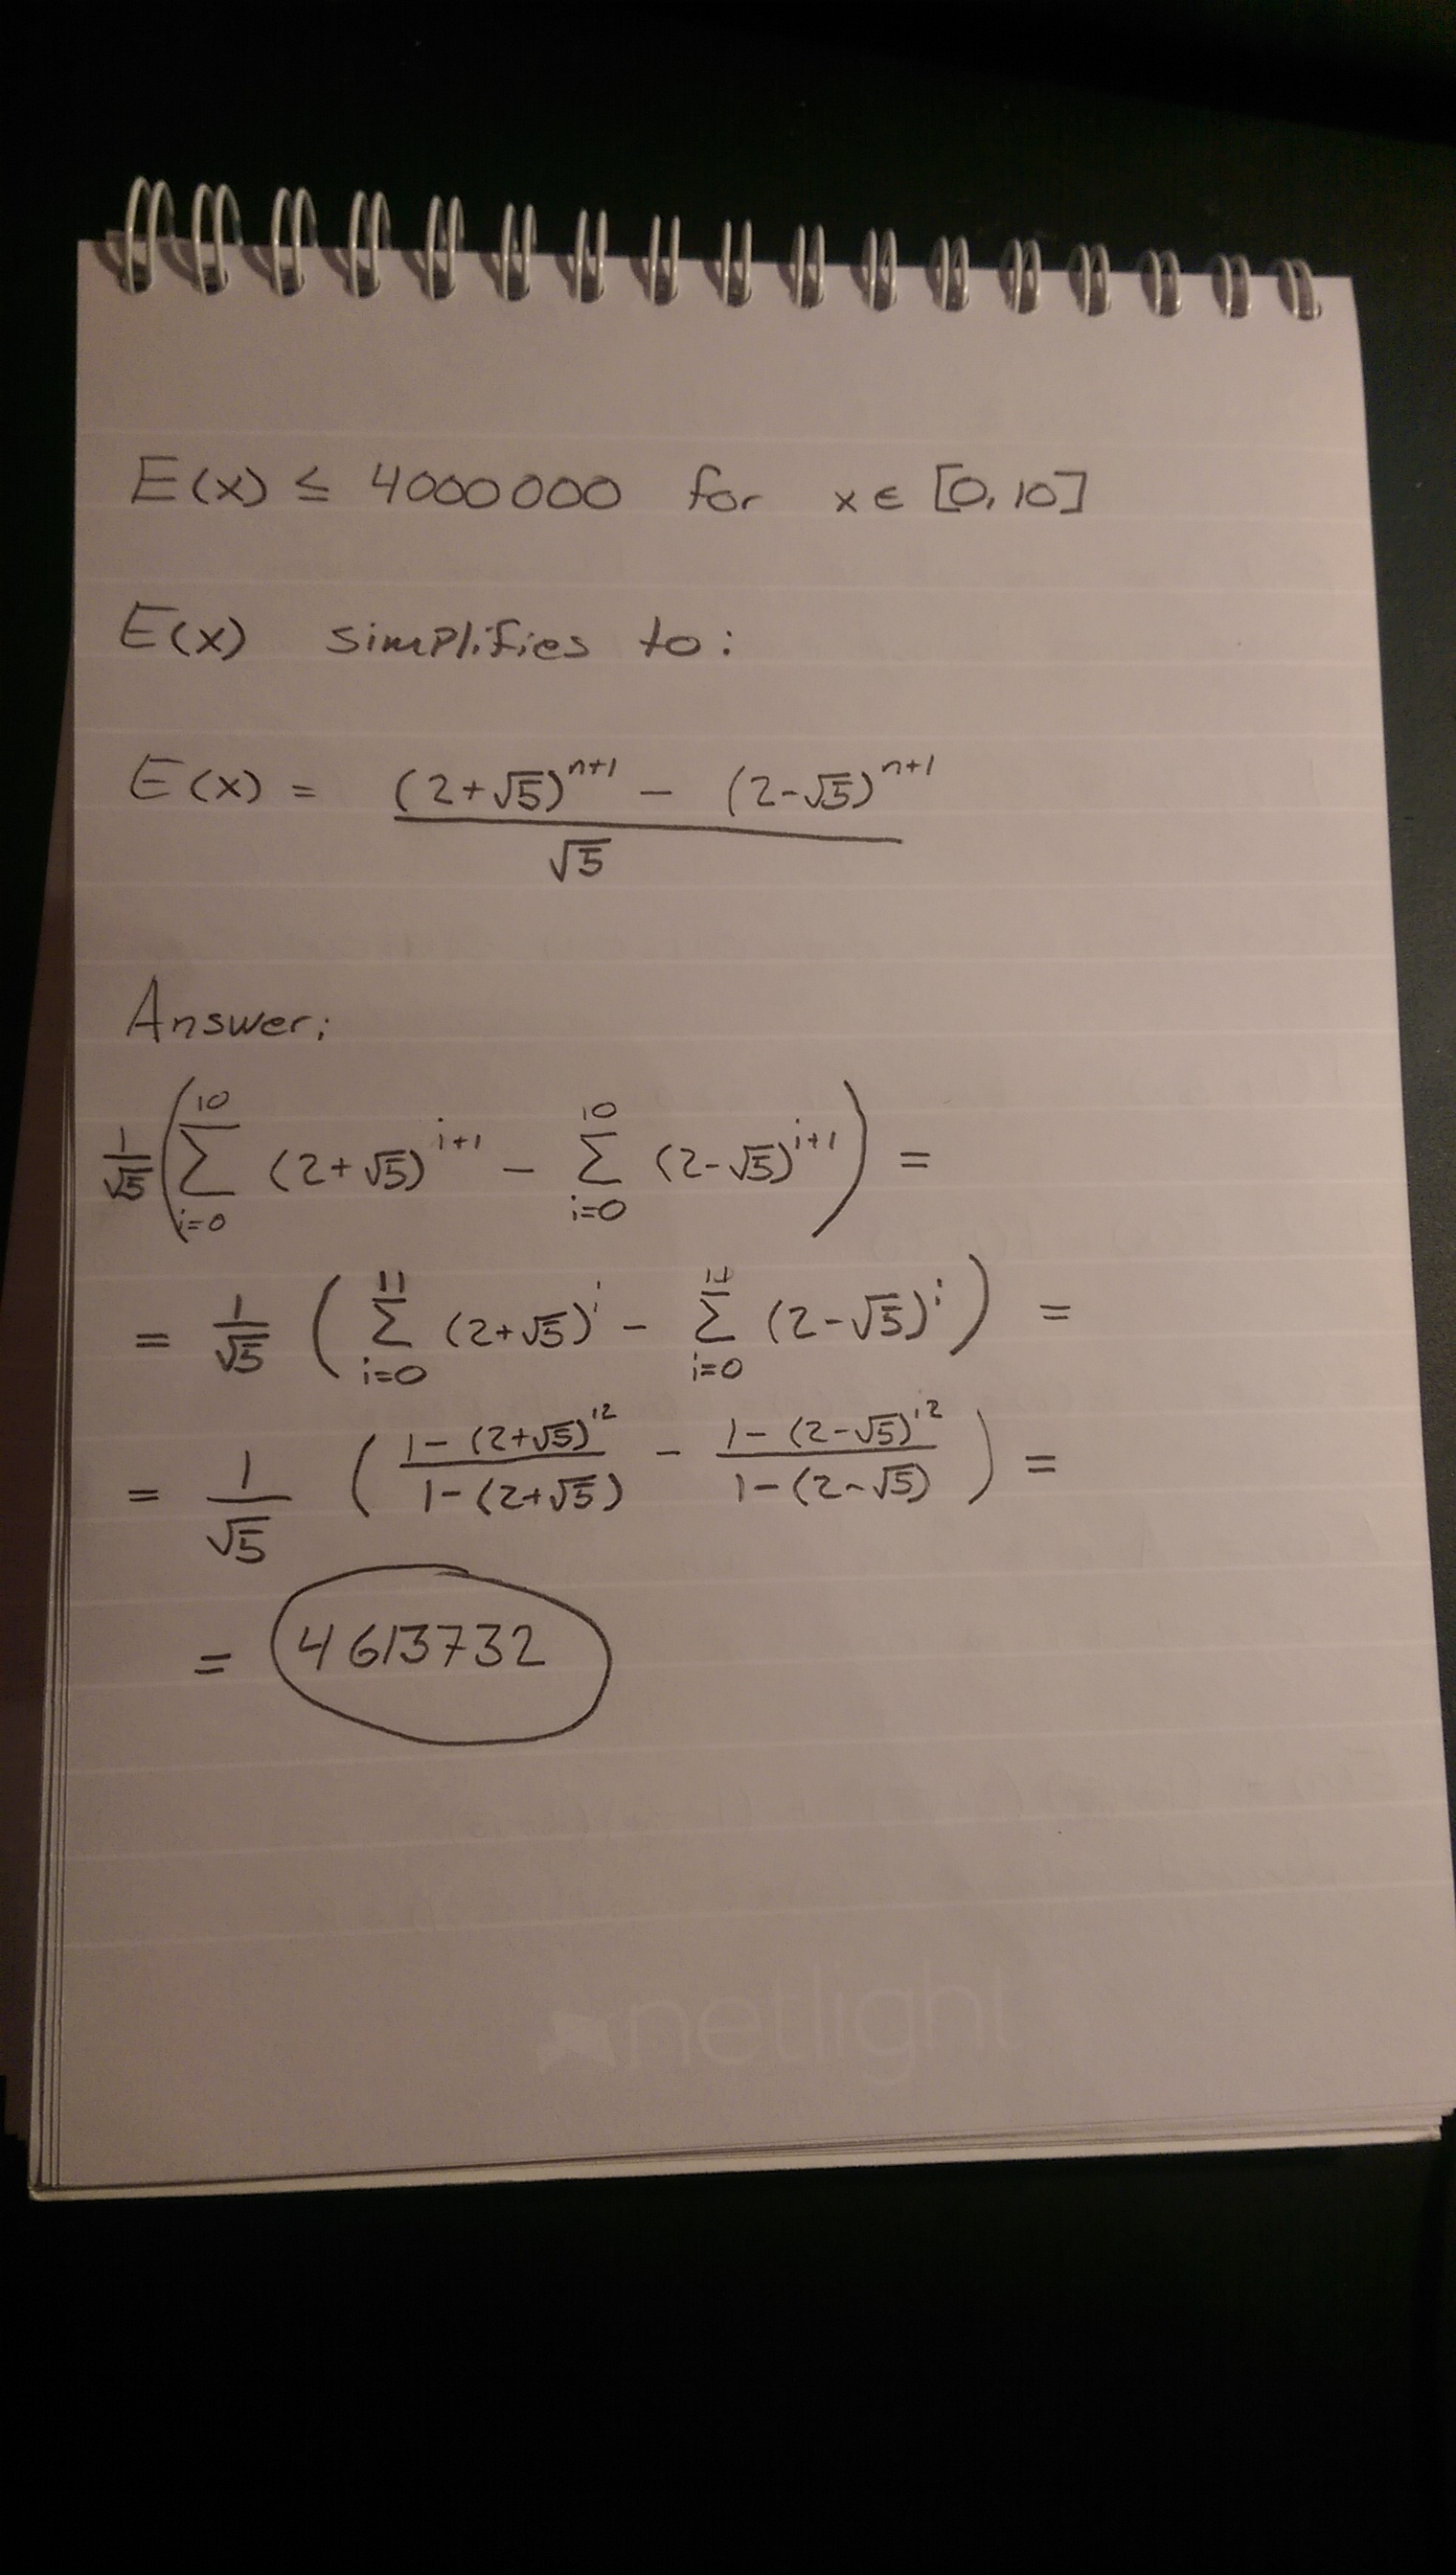 E(x) ≤ 4000000 for x ∈ [0, 10]
E(x) simplifies to:
E(x) = ((2+√5)^{n+1} − (2-√5)^{n+1}) / √5
Answer:
1/√5 (∑_{i=0}^{10} (2+√5)^{i+1} − ∑_{i=0}^{10} (2-√5)^{i+1}) =
= 1/√5 (∑_{i=0}^{11} (2+√5)^i − ∑_{i=0}^{11} (2-√5)^i) =
= 1/√5 ((1-(2+√5)^{12}) / (1-(2+√5)) − (1-(2-√5)^{12}) / (1-(2-√5))) =
= 4613732
netlight